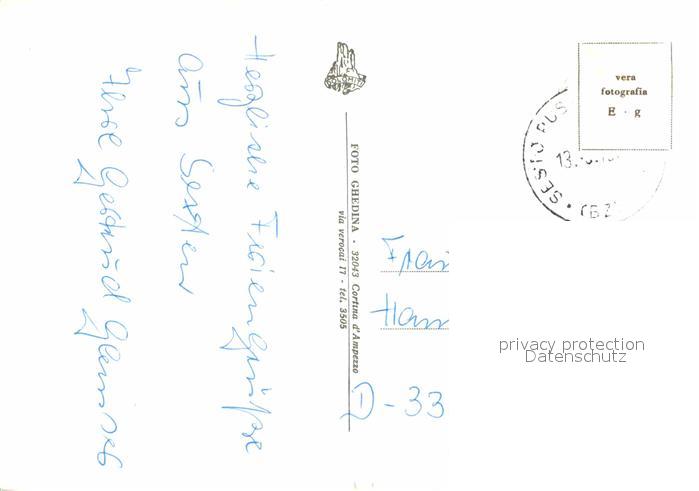 Herzliche Feriengrüße
aus Sexten
Ihre Gertrud
FOTO GHEDINA - 32043 Cortina d'Ampezzo
via verocai 17 - tel. 3505
vera
fotografia
E g
SESTO PUS
13.
(BZ)
Frau
Hann
D-33
privacy protection
Datenschutz